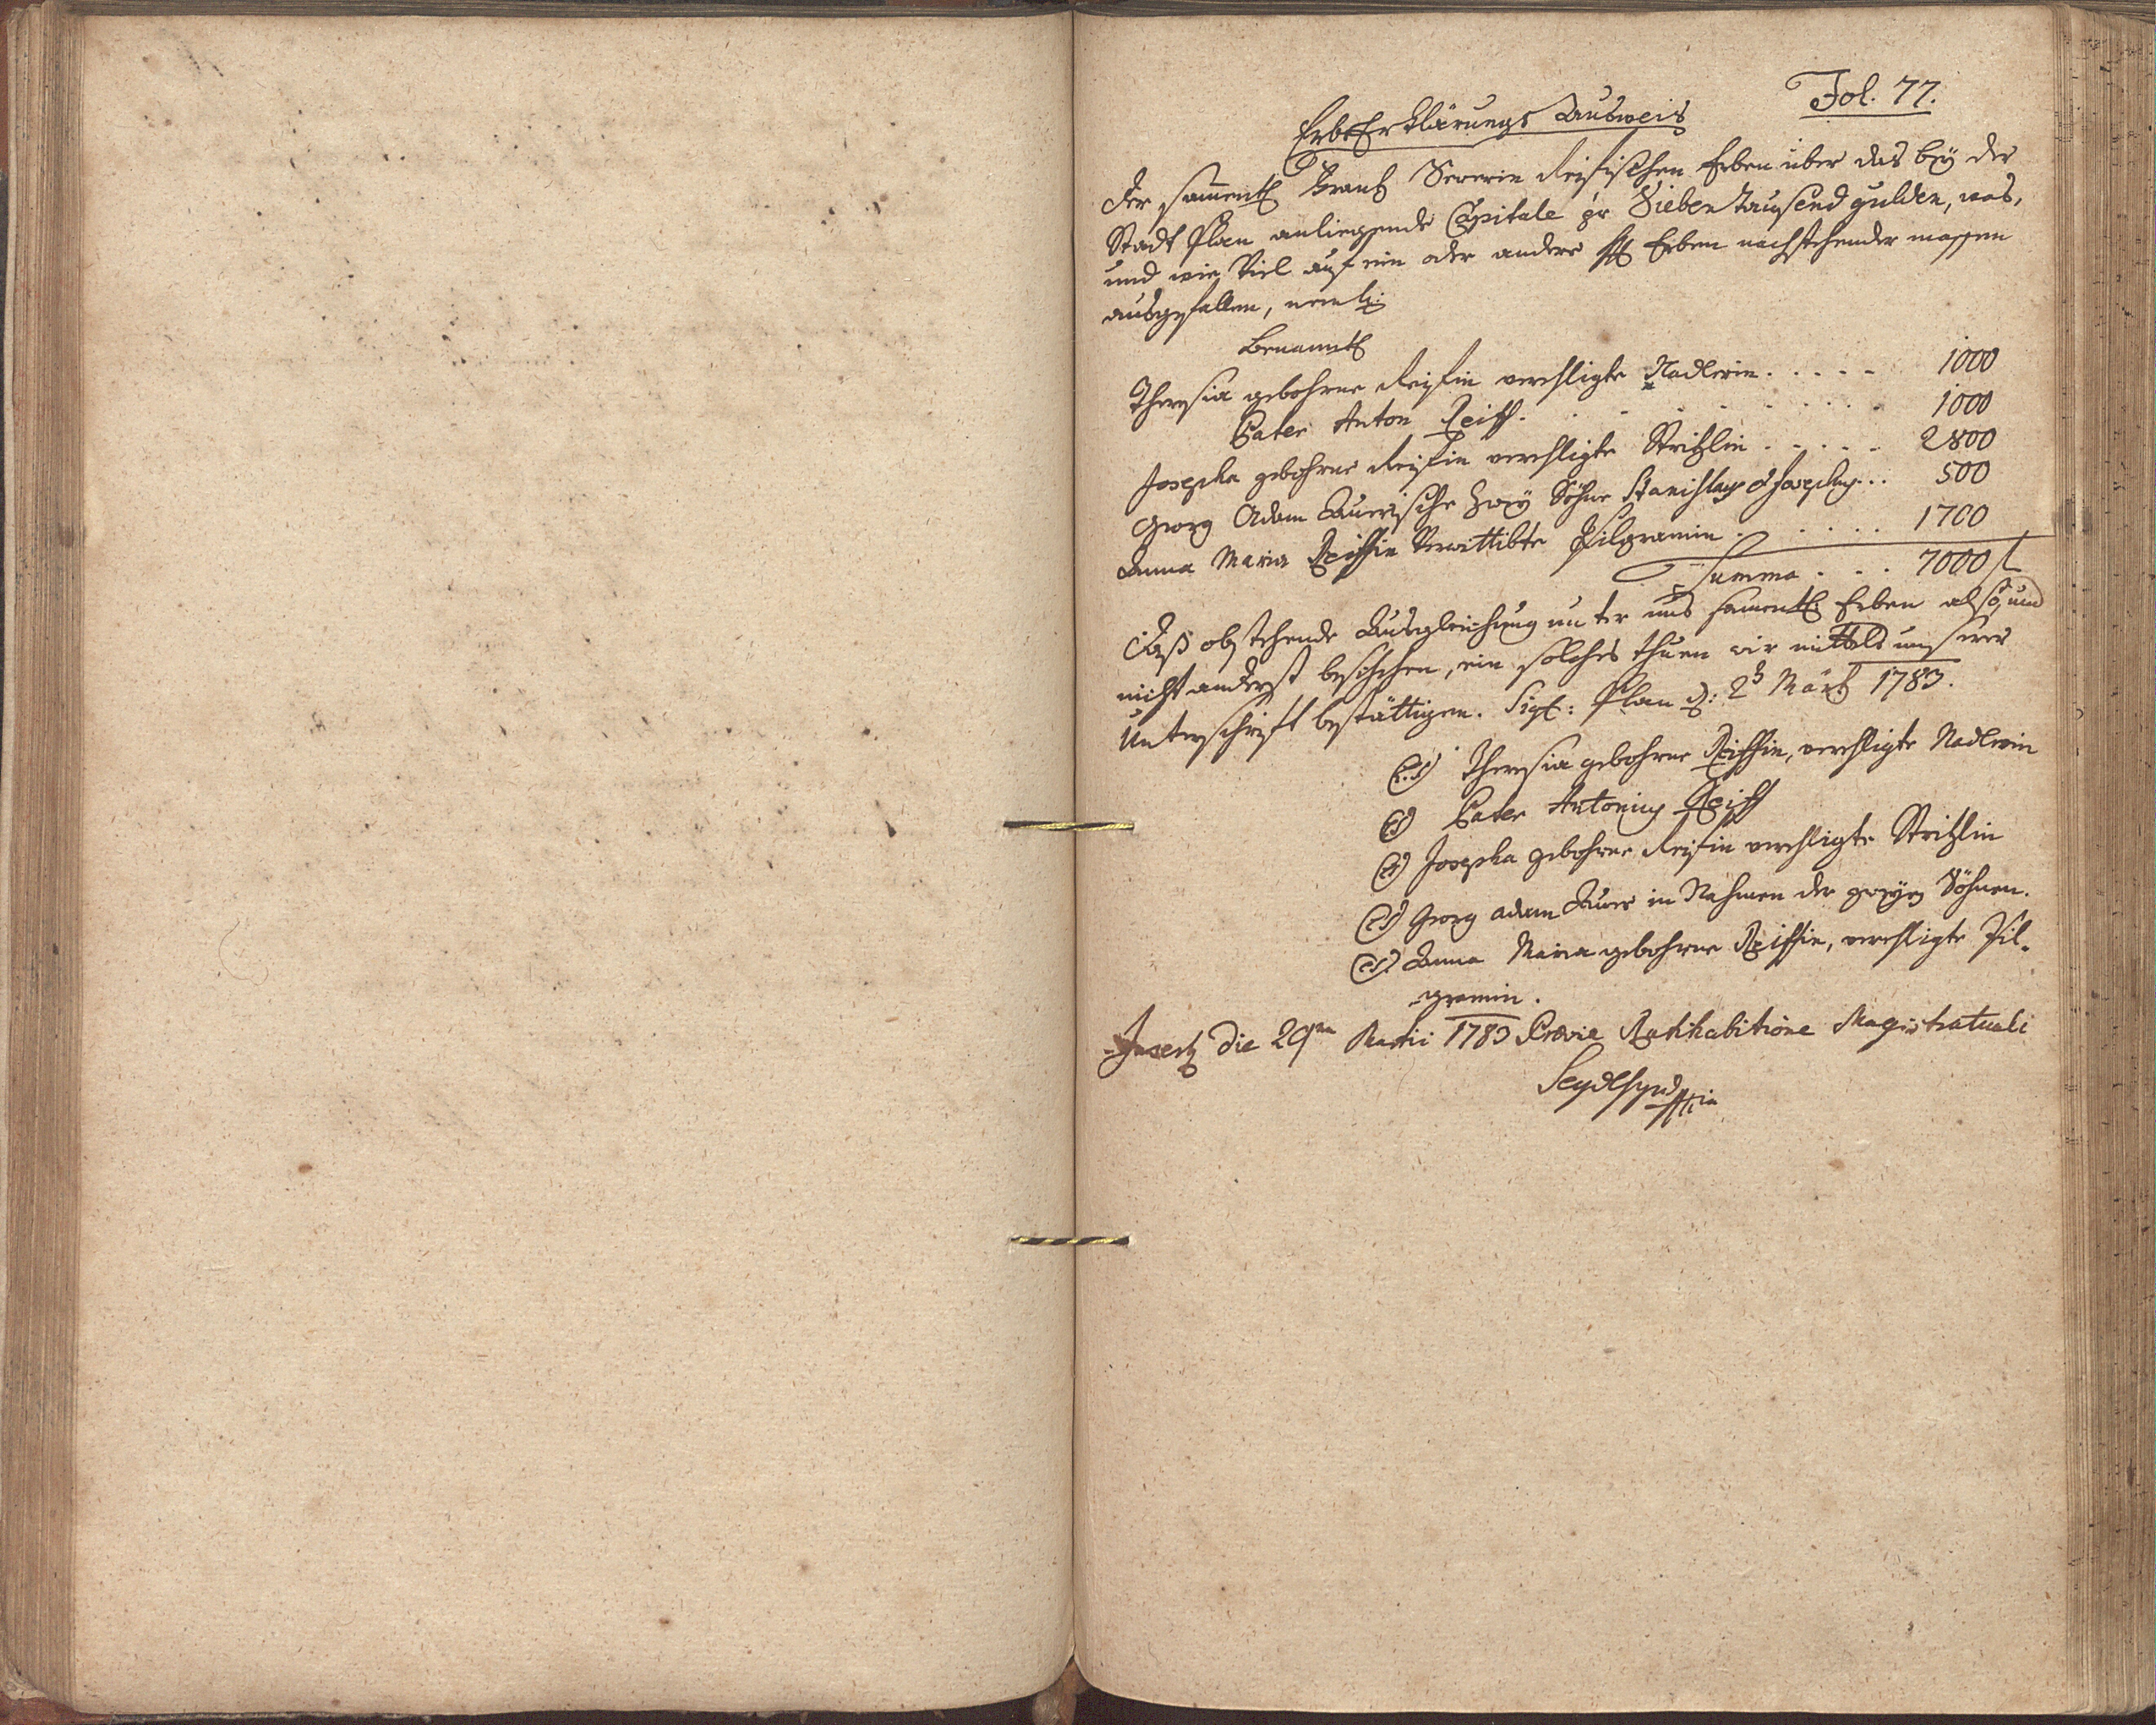 Fol. 77.
Erbs Erklärungs Ausweis
Der sam̄entl Frantz Severin Reifischen Erben über das beÿ der
Stadt Plan anliegende Capitale pr Sieben tausend gulden, was,
und wie Viel auf ein oder andere Erben nachstehender massen
ausgefallen, neml:
Benanntl
Theresia gebohrne Reifin verehligte Nadlerin . . . . . 1000
Pater Anton Reiff . . . . . . . . 1000
Josepha gebohrne Reifin verehligte Stritzlin . . . . . 2800
Georg Adam Auerische Zweÿ Söhne Stanislaus & Josephus . . . 500
Anna Maria Reiffin Verwittibte Pilgramin . . . . . 1700
Summa . . . 7000 f
Daß obstehende Ausgleichung unter uns samentl. Erben also, und
nicht anderst beschehen, ein solches thuen wir mittels unserer
Unterschrift bestättigen. Sigl: Plan d: 2ᵗ Märtz 1783.
(L.S) Theresia gebohrne Reiffin, verehligte Nadlerin
(LS) Pater Antonius Reiff
(LS) Josepha gebohrne Reifin verehligte Stritzlin
(LS) Georg Adam Auer in Nahmen der zweÿen Söhnen.
(LS) Anna Maria gebohrne Reiffin, verehligte Pil-
gramin.
Insert die 29na Martii 1783 Prævie Ratihabitione Magistratuali